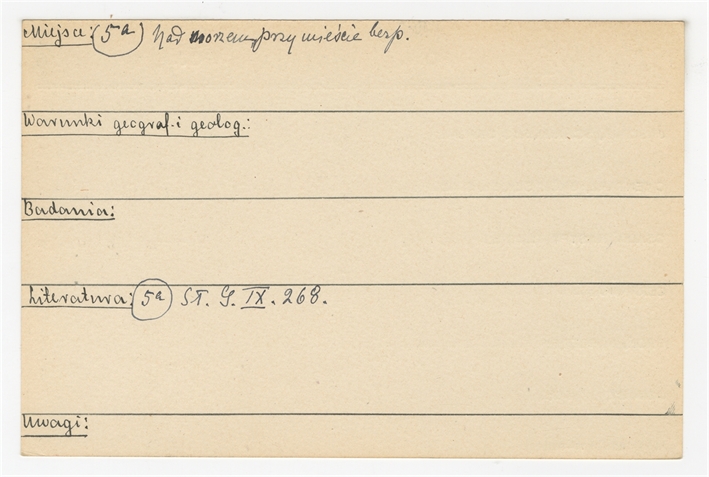 Miejsce: (5a) Nad morzem, przy mieście bezp.
Warunki geograf. i geolog.:
Badania:
Literatura: (5a) ST. G. IX. 268.
Uwagi: